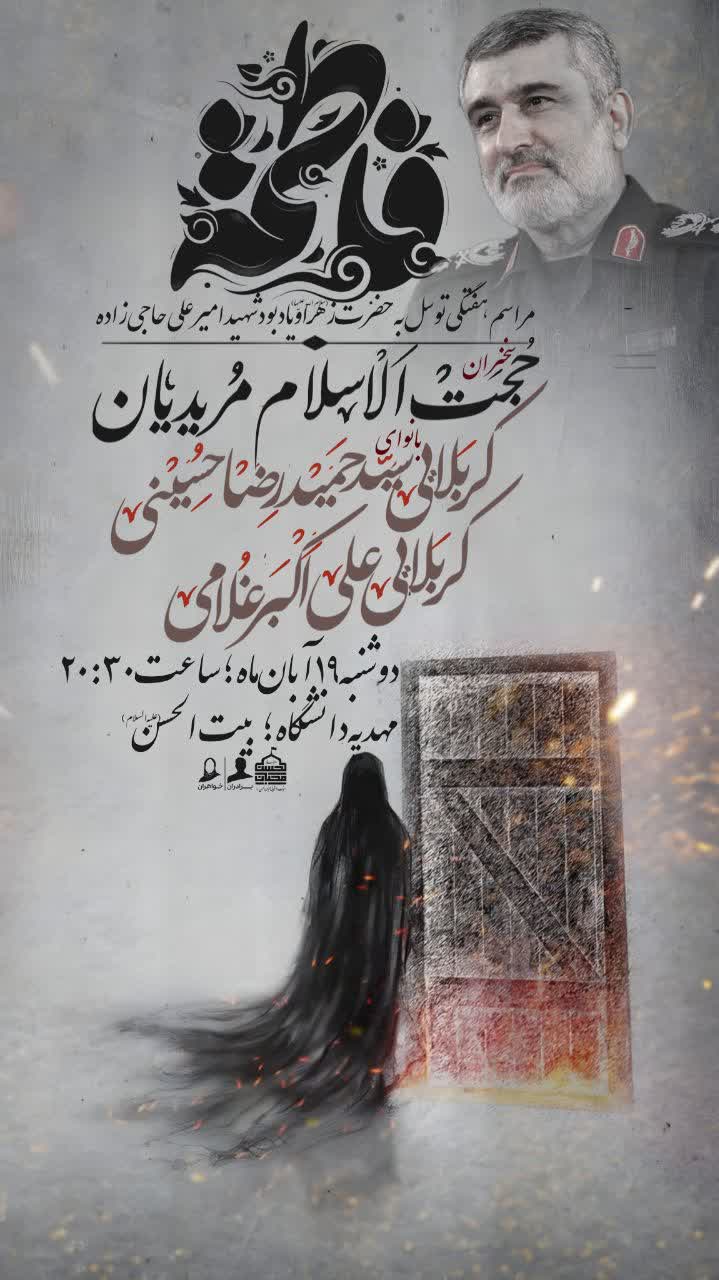 فاطمة
مراسم هفتگی توسل به حضرت زهرا(سلام الله علیها) و یادبود شهید امیرعلی حاجی زاده
سخنران
حُجت الاسلام مُریدیان
بانوای
کربلایی سیّد حمیدرضا حسینی
کربلایی علی اکبر غلامی
دوشنبه ۱۹ آبان ماه؛ ساعت ۲۰:۳۰
مهدیه دانشگاه؛ بیت الحسن (علیه السلام)
برادران | خواهران